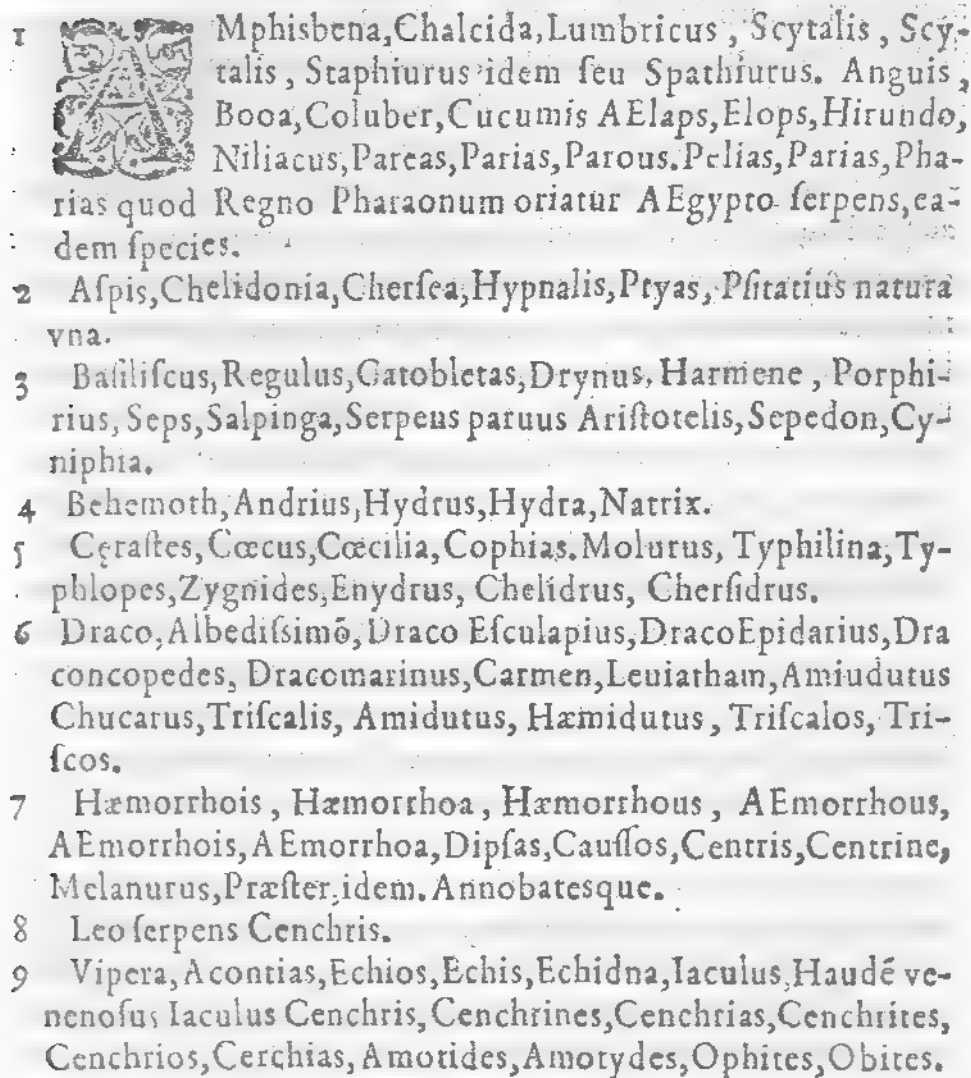 1 AMphisbena,Chalcida,Lumbricus , Scytalis , Scy-
talis , Staphiurus idem ſeu Spathiurus. Anguis,
Booa,Coluber,Cucumis AElaps,Elops,Hirundo,
Niliacus,Pareas,Parias,Parous.Pelias,Parias,Pha-
rias quod Regno Pharaonum oriatur AEgypto ſerpens,ea-
dem ſpecies.
2 Aſpis,Chelidonia,Cherſea,Hypnalis,Ptyas, Pſitatius natura
vna.
3 Baſiliſcus,Regulus,Catobletas,Drynus, Harmene , Porphi-
rius, Seps,Salpinga,Serpens paruus Ariſtotelis,Sepedon,Cy-
niphia.
4 Behemoth,Andrius,Hydrus,Hydra,Natrix.
5 Cęraſtes,Cœcus,Cœcilia,Cophias.Molurus, Typhilina,Ty-
phlopes,Zygnides,Enydrus, Chelidrus, Cherſidrus.
6 Draco,Albediſsimō,Draco Eſculapius,DracoEpidarius,Dra
concopedes, Dracomarinus,Carmen,Leuiatham,Amiudutus
Chucarus,Triſcalis, Amidutus, Hæmidutus , Triſcalos, Tri-
ſcos.
7 Hæmorrhois , Hæmorrhoa, Hæmorrhous , AEmorrhous,
AEmorrhois,AEmorrhoa,Dipſas,Cauſſos,Centris,Centrine,
Melanurus,Præſter,idem.Annobatesque.
8 Leo ſerpens Cenchris.
9 Vipera,Acontias,Echios,Echis,Echidna,Iaculus,Haudé ve-
nenoſus Iaculus Cenchris,Cenchrines,Cenchrias,Cenchrites,
Cenchrios,Cerchias,Amorides,Amorydes,Ophites,Obites.